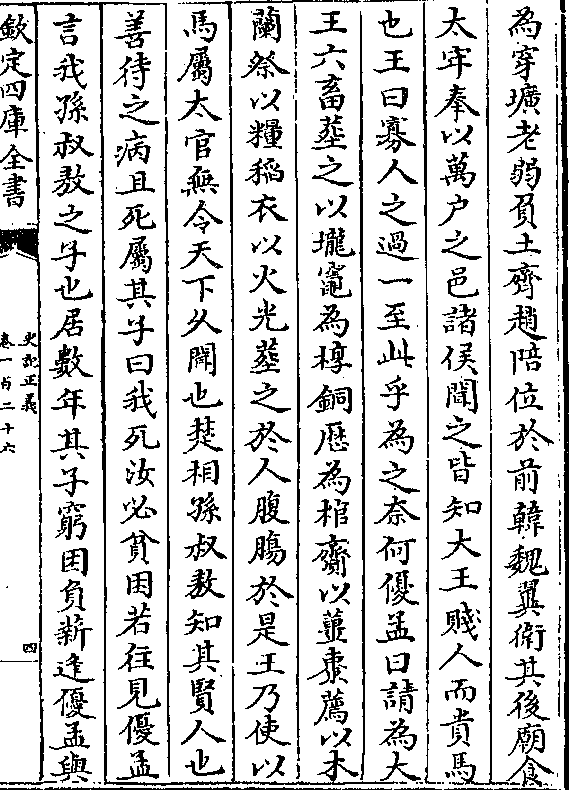 為穿壙老弱負土齊趙陪位於前韓魏翼衛其後廟食
太牢奉以萬户之邑諸侯聞之皆知大王賤人而貴馬
也王曰寡人之過一至此乎為之奈何優孟曰請為大
王六畜葬之以壠竈為椁銅歴為棺齎以薑棗薦以木
蘭祭以糧稻衣以火光葬之於人腹腸於是王乃使以
馬屬太官無令天下久聞也楚相孫叔敖知其賢人也
善待之病且死屬其子曰我死汝必貧困若往見優孟
言我孫叔敖之子也居數年其子窮困負薪逢優孟與
欽定四庫全書
史記正義
卷一百二十六
四